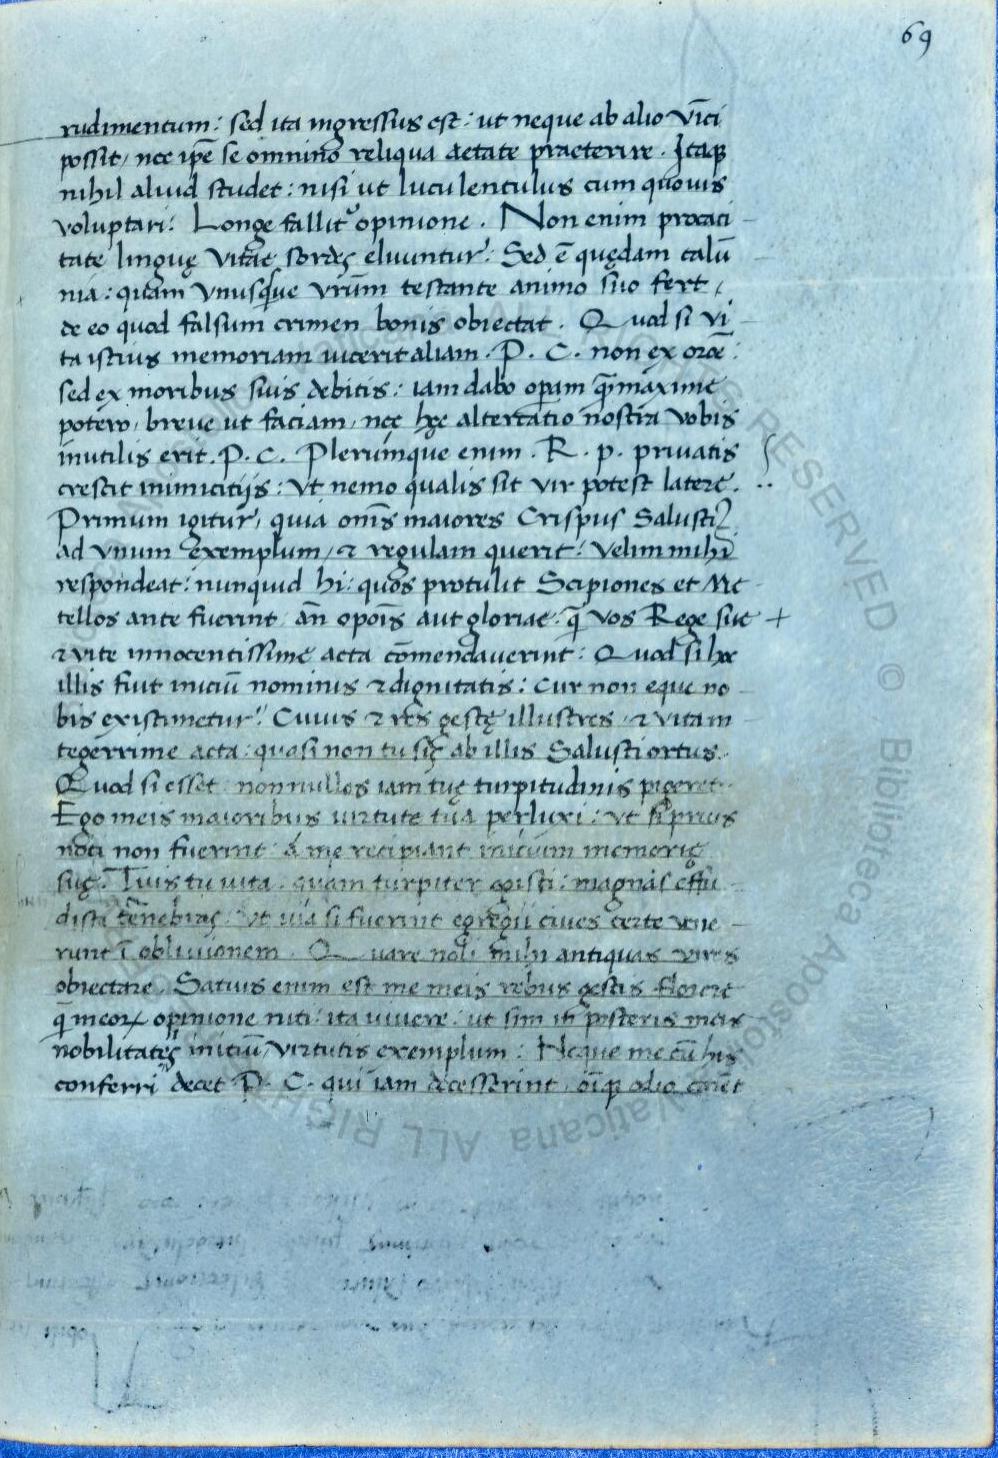 69
rudimentum: sed ita ingressus est: ut neque ab alio vīci
possit, nec ipē se omnino reliqua aetate praeterire. Itaqꝫ
nihil aliud studet: nisi ut luculentulus cum quouis
voluptari: Longe fallit opinione. Non enim procaci
tate linguę vitae sordes eluuntur. Sed ē quędam calū
nia: quam vnusqsque vrūm testante animo suo fert,
de eo quod falsum crimen bonis obiectat. Quod si vi
ta istius memoriam uicerit aliam. P. C. non ex orōe:
sed ex moribus suis debitis: iam dabo opam q̄ maxime
potero, breue ut faciam, nec hęc altercatio nostra vobis
inutilis erit. P. C. Plerumque enim. R. p. priuatis
crescit inimicitijs: Vt nemo qualis sit vir potest latere.
Primum igitur, quia om̄s maiores Crispus Salusti
ad vnum exemplum, & regulam querit: velim mihi
respondeat: nunquid hi: quos protulit Scipiones et Me
tellos ante fuerint an̄ opōis aut gloriae. q̄ vos Rege sue
& vite innocentissime acta cōmendauerint: Quod si hoc
illis fiut iniciū nominis & dignitatis: cur non eque no
bis existimetur? Cuius & rēs gestę illustres, & vita in
tegerrime acta: quasi non tu sis ab illis Salusti ortus.
Quod si esset nonnullos iam tuę turpitudinis pigeret.
Ego meis maioribus uirtute tua perluxi: ut si prius
noti non fuerint á me recipiant inicium memorię
suę. Tuis tu uita. quam turpiter egisti: magnas effu
disti tenebras: Vt uia si fuerint egregii ciues certe vene
runt ī obliuionem. Quare noli mihi antiquas viros
obiectare. Satius enim est me meis rebus gestis florere
q̄ meoꝝ opinione niti: ita uiuere: ut sim posteris meis
nobilitates iniciū, virtutis exemplum: Neque me cū his
conferri decet P. C. qui iam decesserint, oīqꝫ odio carēt